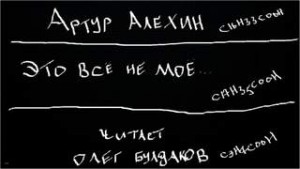 Артур Алехин
C15H33COOH
Это все не мое...
C17H35COOH
Читает
Олег Булдаков
C3H7COOH